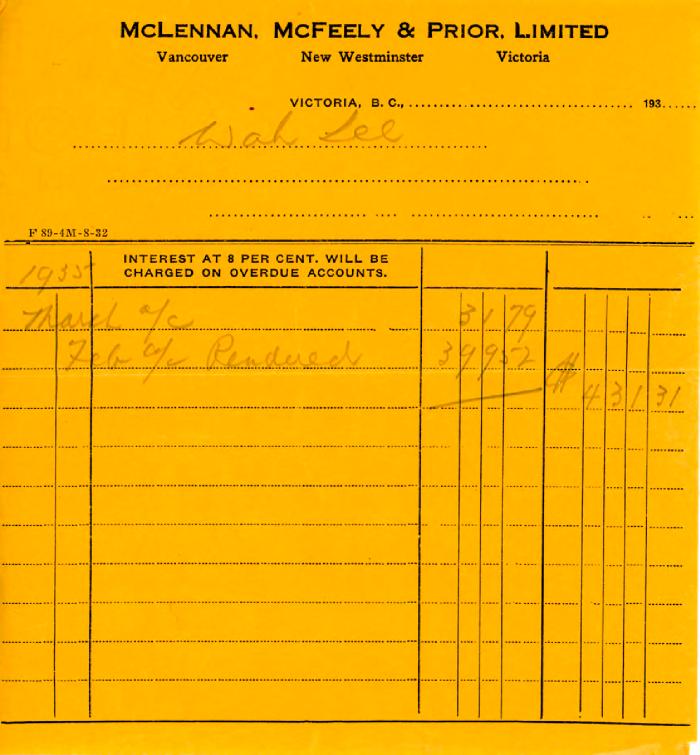 McLENNAN, McFEELY & PRIOR, LIMITED
Vancouver New Westminster Victoria
VICTORIA, B. C., 193
Wah Lee
F 89-4M-8-32
1935 INTEREST AT 8 PER CENT. WILL BE
CHARGED ON OVERDUE ACCOUNTS.
March a/c 31 79
Feb a/c Rendered 399 52
$ 431 31